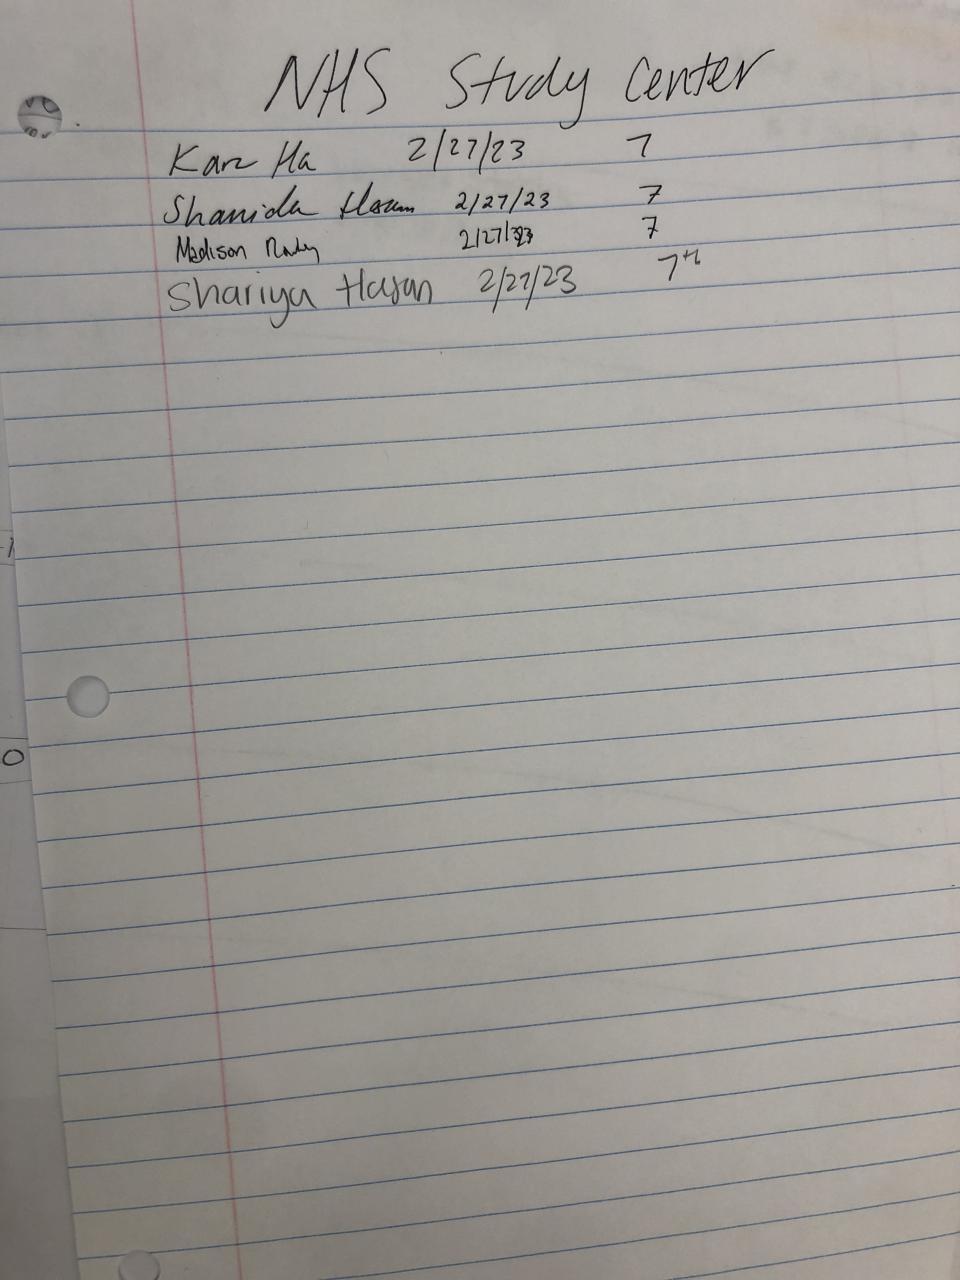 NHS Study Center
Ha 2/27/23 7
Shanida 2/27/23 7
Madison 2/27/23 7
Shariya Hasan 2/27/23 7th